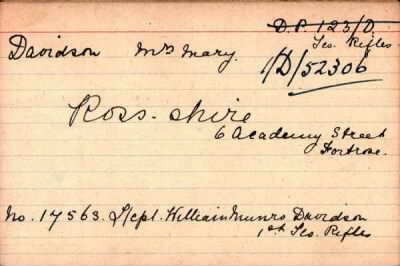 D.P. 123/D.
Sco. Rifles.
Davidson Mrs Mary.
1/D/52306
Ross-shire
6 Academy Street
Fortrose.
No. 17563. L/cpl. William Munro Davidson
1st Sco. Rifles